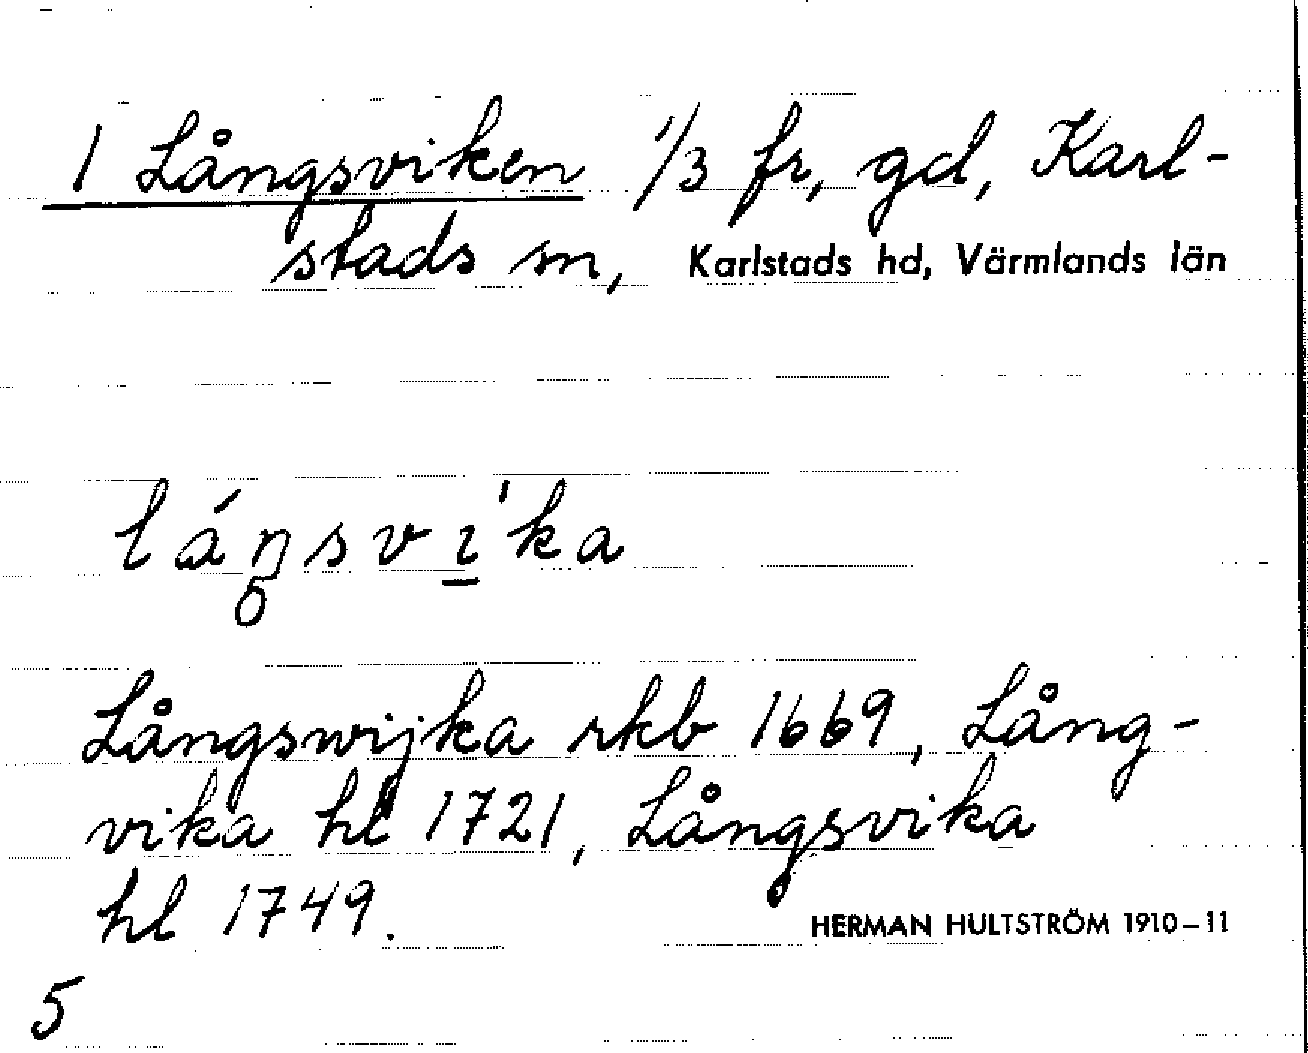 1 Långsviken 1/3 fr, gd, Karl-
stads sn, Karlstads hd, Värmlands län
lá̱ŋ̥svı̱̍ka
Långswijka rkb 1669, Lång-
vika hl 1721, Långsvika
hl 1749.
HERMAN HULTSTRÖM 1910–11
5